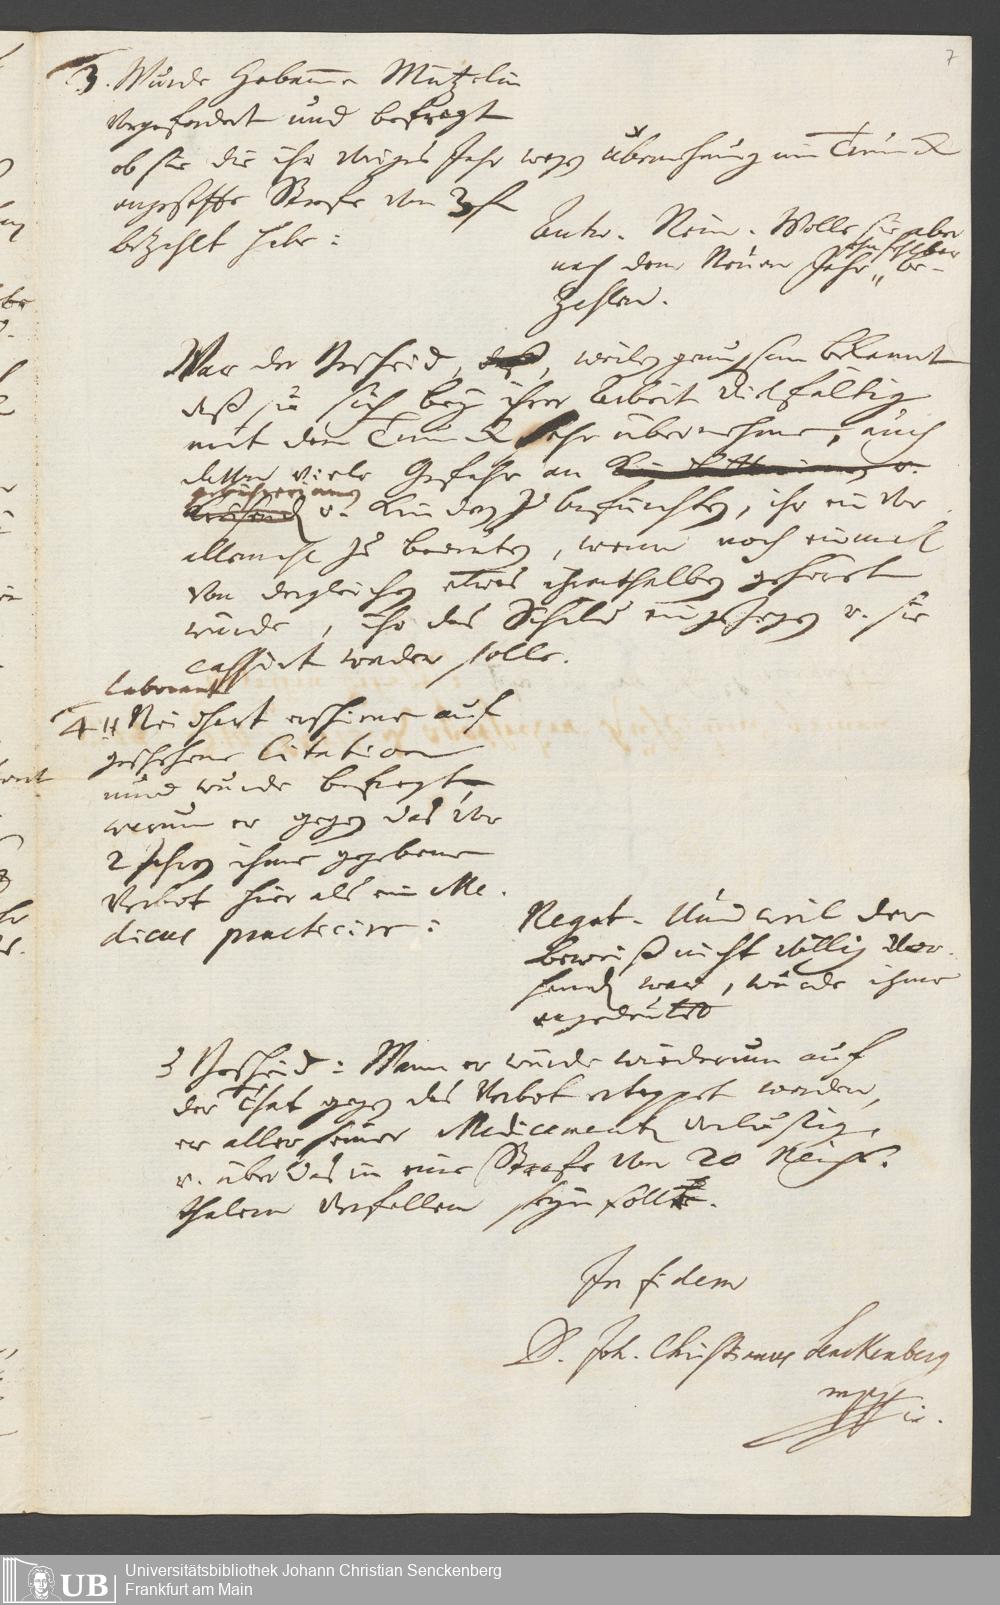 7
3. Wurde Hebamme Mützelin
vorgefordert und befragt
ob sie die ihr voriges Jahr wegen übernehmung im Trunck
angesetzte Strafe von 3 f
bezahlt habe:
Antw. Nein. Wolle sie aber
nach dem Neuen Jahr ohnfehlbar be-
zahlen.
War der Bescheid, weilen genugsam bekannt
daß sie sich bey ihrer Arbeit vielfältig
mit dem Trunck sehr übernehme, auch
viele Gefahr an
v. Kindern zu befürchten, ihr ein vor
allemahl zu bedeuten, wenn noch einmal
von dergleichen etwas ihrenthalben gehöret
würde, ihr das Schild eingezogen v. sie
cassirt werden solle.
Laborant
4. Neidhart erschiene auf
geschehene Citation
und wurde befragt,
warum er gegen das vor
2 Jahren ihme gegebene
Verbot hier als ein Me-
dicus practicire:
Negat. Und weil der
Beweiß nicht völlig vor-
handen war, wurde ihme
angedeutet
z Bescheid: Wann er würde wiederum auf
der That gegen das Verbot ertappet werden,
er aller seiner Medicamenten verlustig,
v. über das in eine Strafe von 20 Reichs-
thalern verfallen seyn sollte.
In fidem
D. Joh. Christianus Senckenberg
mppria.
Universitätsbibliothek Johann Christian Senckenberg
UB Frankfurt am Main